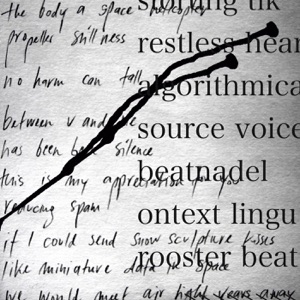 the body a space helicopter
propeller stillness
restless hear
no harm can fall
algorithmica
between v and
source voice
has been silence
beatnadel
this is my appreciation for you
ontext lingu
reducing spam
if I could send snow sculpture kisses
rooster beat
like miniature data in space
we would meet air light years away